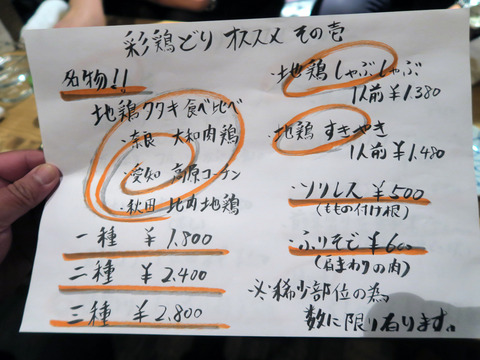 彩鶏どり オススメ その壱
名物!!
地鶏タタキ 食べ比べ
・奈良 大和肉鶏
・愛知 高原コーチン
・秋田 比内地鶏
一種 ¥1,800
二種 ¥2,400
三種 ¥2,800
・地鶏 しゃぶしゃぶ
1人前 ¥1,380
・地鶏 すきやき
1人前 ¥1,480
・ソリレス ¥500
(ももの付け根)
・ふりそで ¥600
(肩まわりの肉)
※稀少部位の為
数に限り有ります。